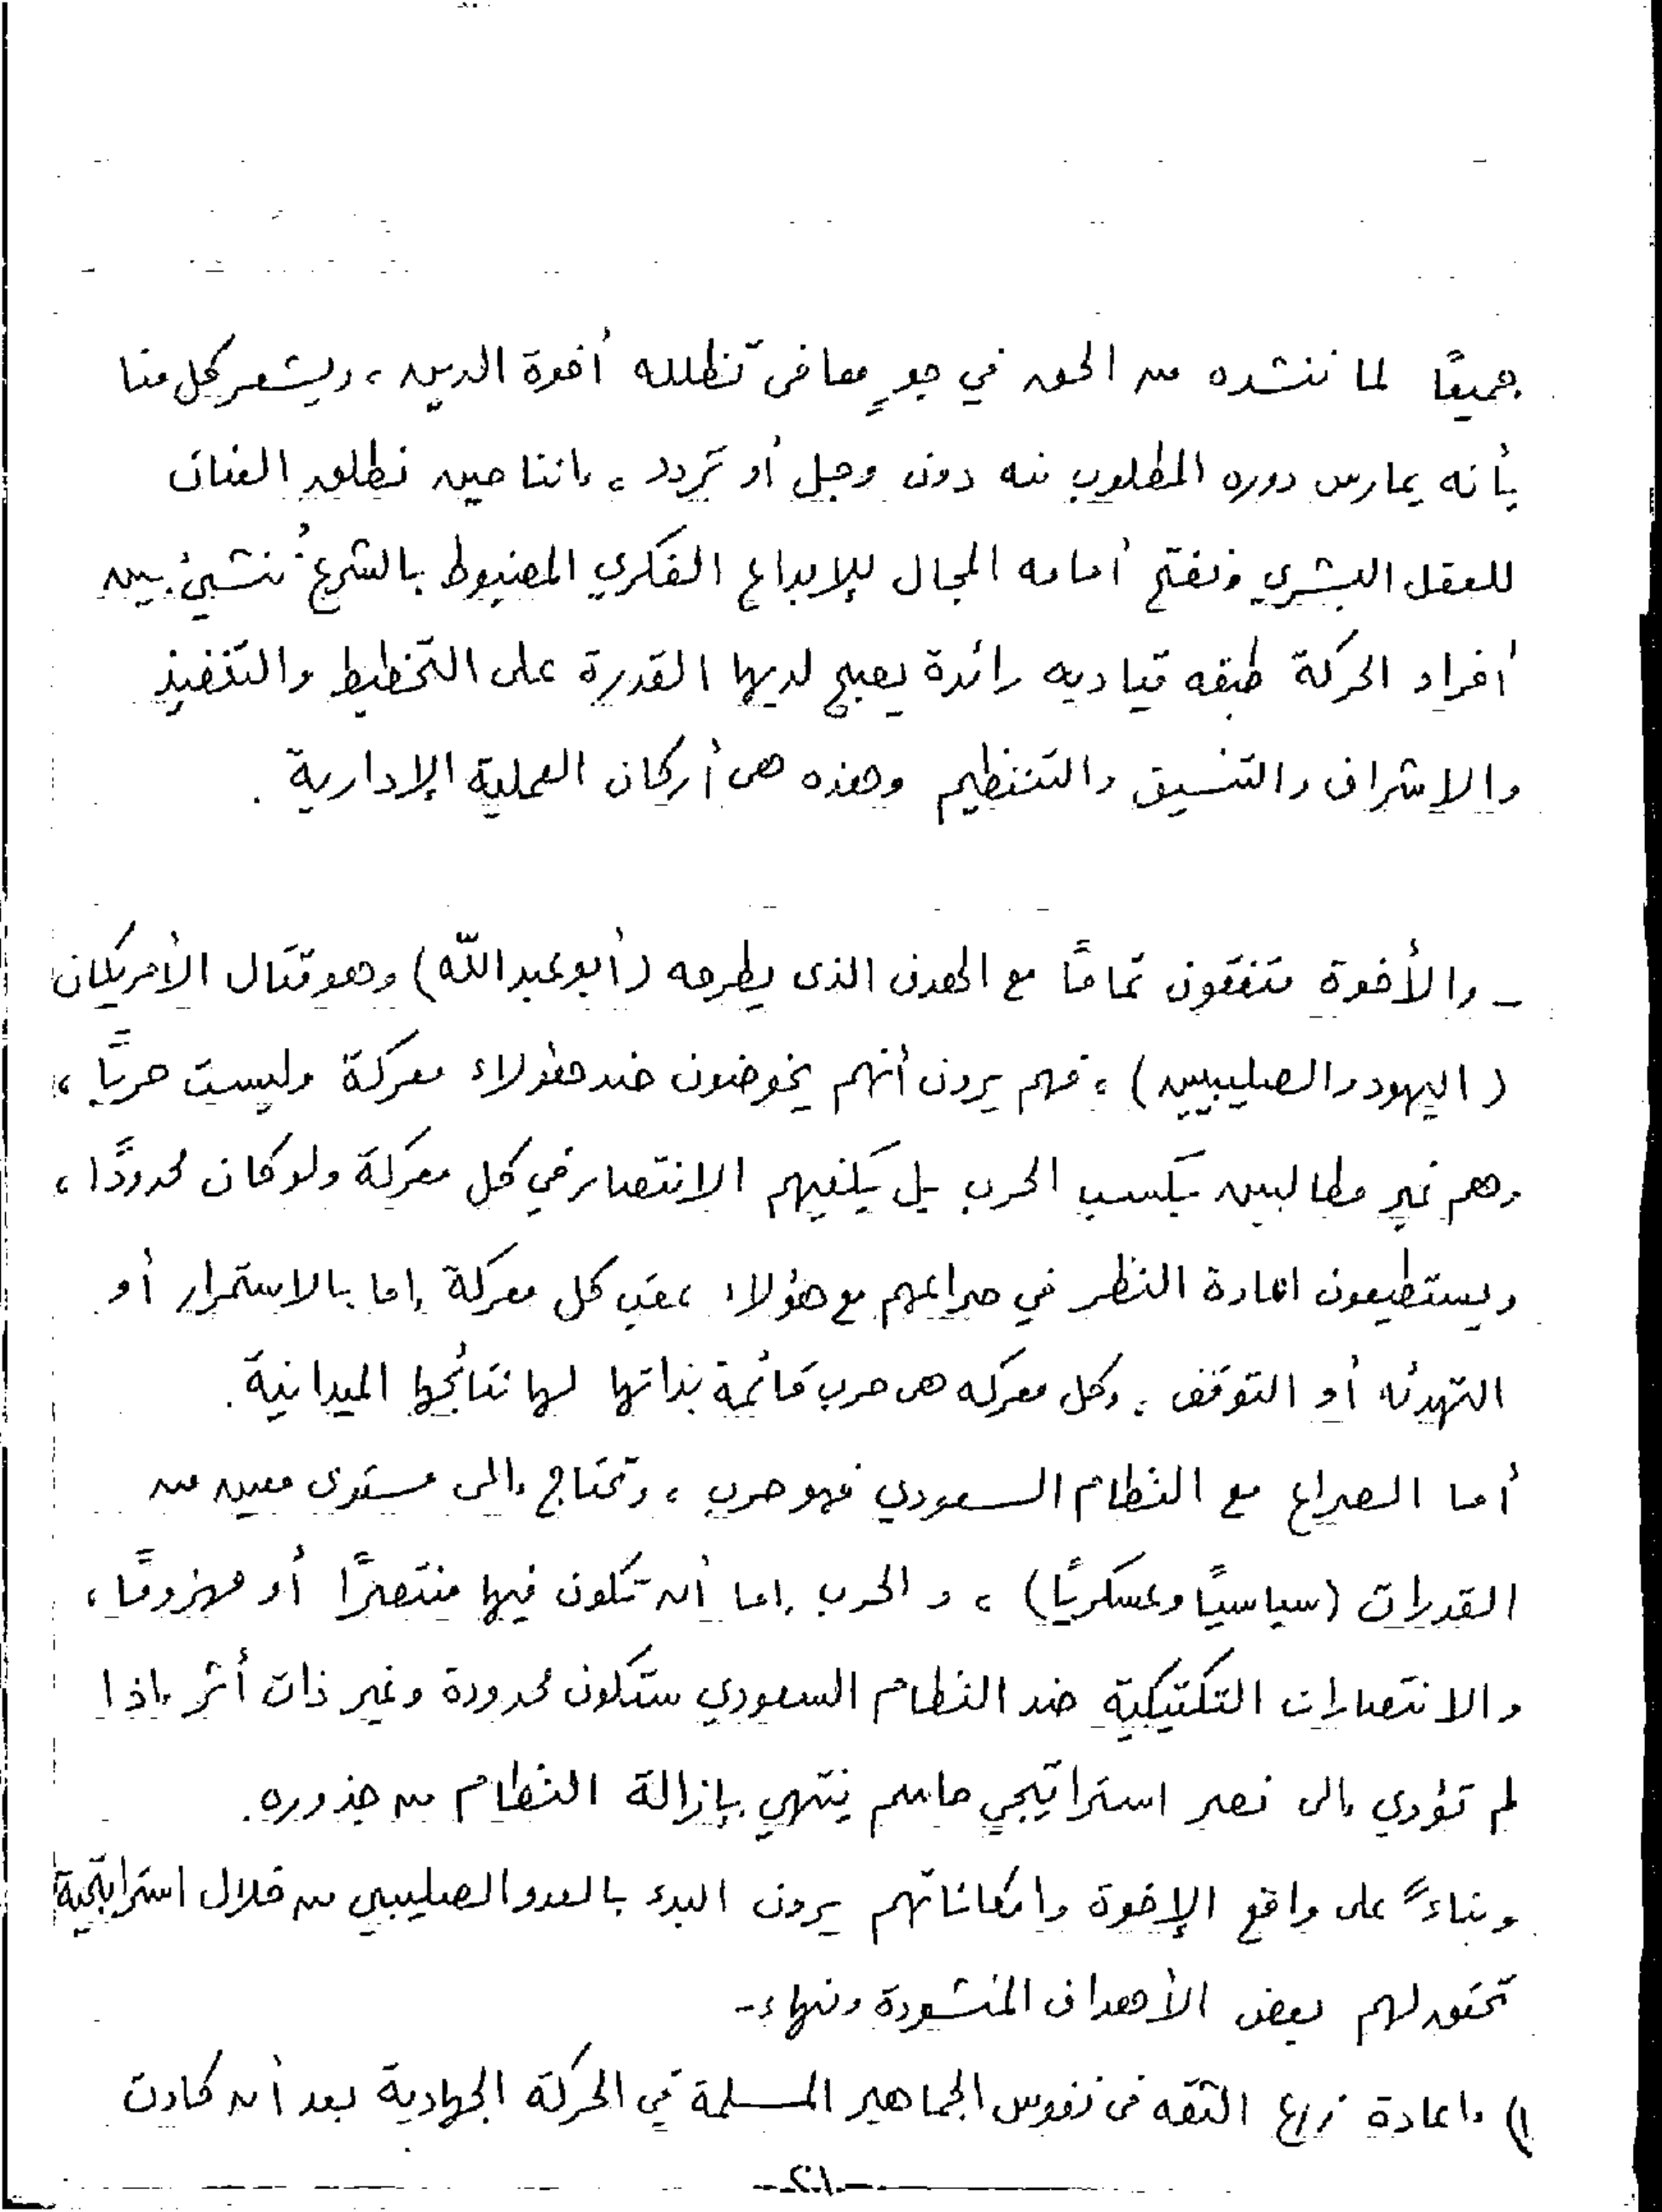 جميعًا لما ننشده من الحق في جوٍ معافى تظلله أخوة الدين، ويشعر كل منا
بأنه يمارس دوره المطلوب منه دون وجل أو تردد، إننا حين نطلق العنان
للعقل البشري ونفتح أمامه المجال للإبداع الفكري المضبوط بالشرع نُنشئ بين
أفراد الحركة طبقه قياديه رائدة يصبح لديها القدرة على التخطيط والتنفيذ
والاشراف والتنسيق والتنظيم وهذه هى أركان العملية الإدارية.
- والأخوة متفقون تمامًا مع الهدف الذى يطرحه (أبو عبد الله) وهو قتال الأمريكان
(اليهود والصليبيين)، فهم يرون أنهم يخوضون ضد هؤلاء معركة وليست حربًا،
وهم غير مطالبين بكسب الحرب بل يكفيهم الانتصار في كل معركة ولو كان محدودًا،
ويستطيعون اعادة النظر في صراعهم مع هؤلاء عقب كل معركة إما بالاستمرار أو
التهدئه أو التوقف، وكل معركه هى حرب قائمة بذاتها لها نتائجها الميدانية.
أما الصراع مع النظام السعودي فهو حرب، وتحتاج إلى مستوى معين من
القدرات (سياسيًا وعسكريًا)، والحرب إما أن تكون فيها منتصرًا أو مهزومًا،
والانتصارات التكتيكية ضد النظام السعودي ستكون محدودة وغير ذات أثر إذا
لم تؤدي إلى نصر استراتيجي حاسم ينتهي بإزالة النظام من جذوره.
وبناءً على واقع الإخوة وامكاناتهم يرون البدء بالعدو الصليبي من خلال استراتيجية
تحقق لهم بعض الأهداف المنشودة ومنها:-
١) إعادة زرع الثقه فى نفوس الجماهير المسلمة في الحركة الجهادية بعد أن كادت
-٢١-